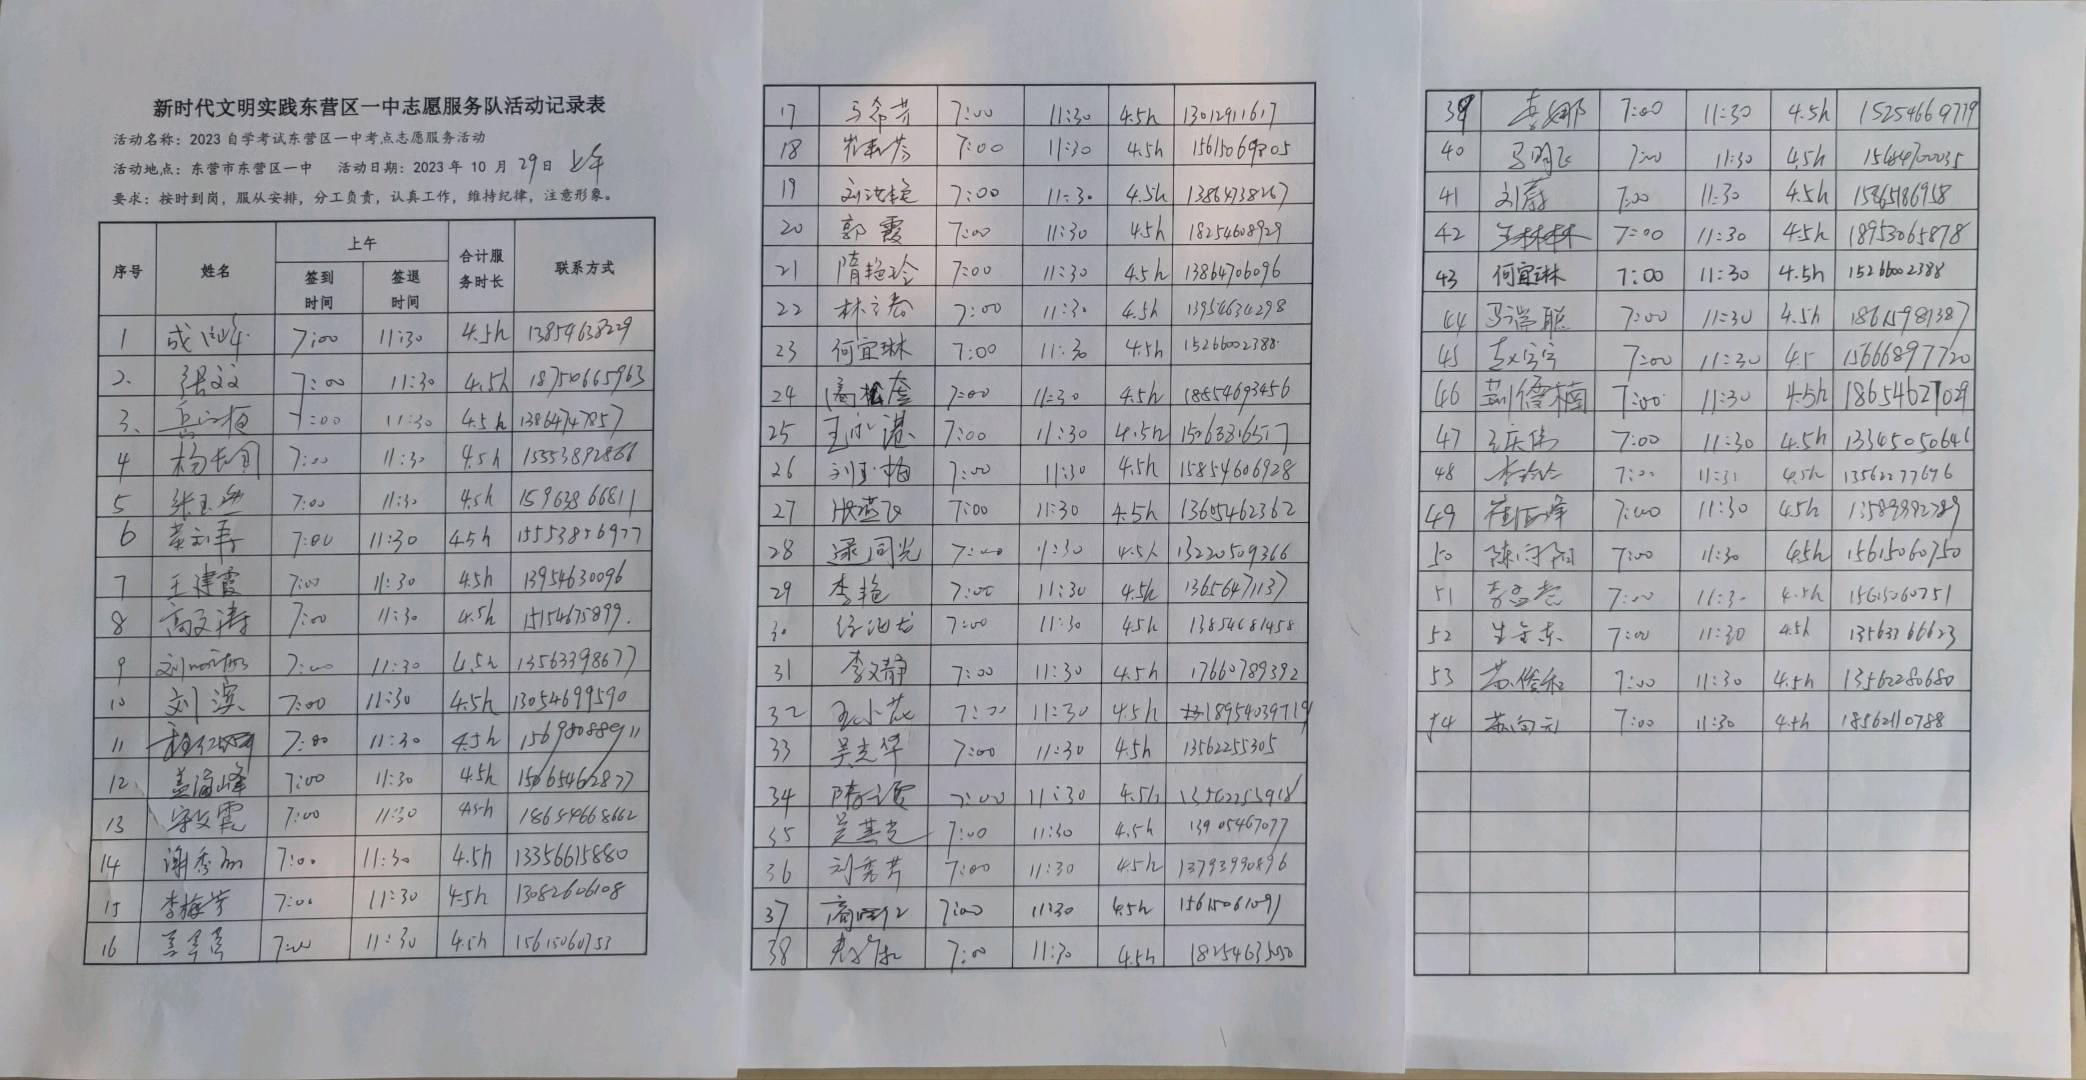 新时代文明实践东营区一中志愿服务队活动记录表
活动名称：2023 自学考试东营区一中考点志愿服务活动
活动地点：东营市东营区一中 活动日期：2023 年 10 月 29日 上午
要求：按时到岗，服从安排，分工负责，认真工作，维持纪律，注意形象。
序号 姓名 上午 合计服务时长 联系方式
签到时间 签退时间
1 7:00 11:30 4.5h 13854638229
2. 张文 7:00 11:30 4.5h 18750665963
3、 7:00 11:30 4.5h 13864747857
4 7:00 11:30 4.5h 15553892866
5 7:00 11:30 4.5h 15963866811
6 7:00 11:30 4.5h 15553856977
7 王建霞 7:00 11:30 4.5h 13954630096
8 高文涛 7:00 11:30 4.5h 15154675899.
9 7:00 11:30 4.5h 13563398677
10 刘滨 7:00 11:30 4.5h 13054699590
11 7:00 11:30 4.5h 15698088911
12 盖海峰 7:00 11:30 4.5h 15065462877
13 宋文霞 7:00 11:30 4.5h 18654668662
14 7:00 11:30 4.5h 13356615880
15 李梅芳 7:00 11:30 4.5h 13082606108
16 7:00 11:30 4.5h 15615060753
17 马希芳 7:00 11:30 4.5h 13012911617
18 7:00 11:30 4.5h 15615069805
19 刘洪艳 7:00 11:30 4.5h 13864738267
20 郭霞 7:00 11:30 4.5h 18254608929
21 隋艳玲 7:00 11:30 4.5h 13864706096
22 林立春 7:00 11:30 4.5h 13954634298
23 何宜琳 7:00 11:30 4.5h 15266002388
24 7:00 11:30 4.5h 18554693456
25 7:00 11:30 4.5h 15063816517
26 刘玉梅 7:00 11:30 4.5h 15854606928
27 张燕飞 7:00 11:30 4.5h 13605462362
28 逯同光 7:00 11:30 4.5h 13220509366
29 李艳 7:00 11:30 4.5h 13656471137
30 7:00 11:30 4.5h 13854681458
31 李文静 7:00 11:30 4.5h 17660789392
32 7:00 11:30 4.5h 18954039719
33 吴光华 7:00 11:30 4.5h 13562255305
34 7:00 11:30 4.5h 13562253918
35 7:00 11:30 4.5h 13905467077
36 刘秀芳 7:00 11:30 4.5h 13793990896
37 7:00 11:30 4.5h 15615061091
38 7:00 11:30 4.5h 18254635050
39 李娜 7:00 11:30 4.5h 15254669779
40 7:00 11:30 4.5h
41 刘蔚 7:00 11:30 4.5h 15865186958
42 王林林 7:00 11:30 4.5h 18953065878
43 何宜琳 7:00 11:30 4.5h 15266002388
44 马常聪 7:00 11:30 4.5h 18615981387
45 7:00 11:30 4.5 15666897720
46 7:00 11:30 4.5h 18654627029
47 王庆伟 7:00 11:30 4.5h 13345050641
48 李玲玲 7:00 11:31 4.5h 13562277676
49 崔海峰 7:00 11:30 4.5h 13589992789
50 7:00 11:30 4.5h 15615060750
51 7:00 11:30 4.5h 15615060751
52 生守东 7:00 11:30 4.5h 13563766623
53 苏俊和 7:00 11:30 4.5h 13562280680
54 苏向元 7:00 11:30 4.5h 18562110788